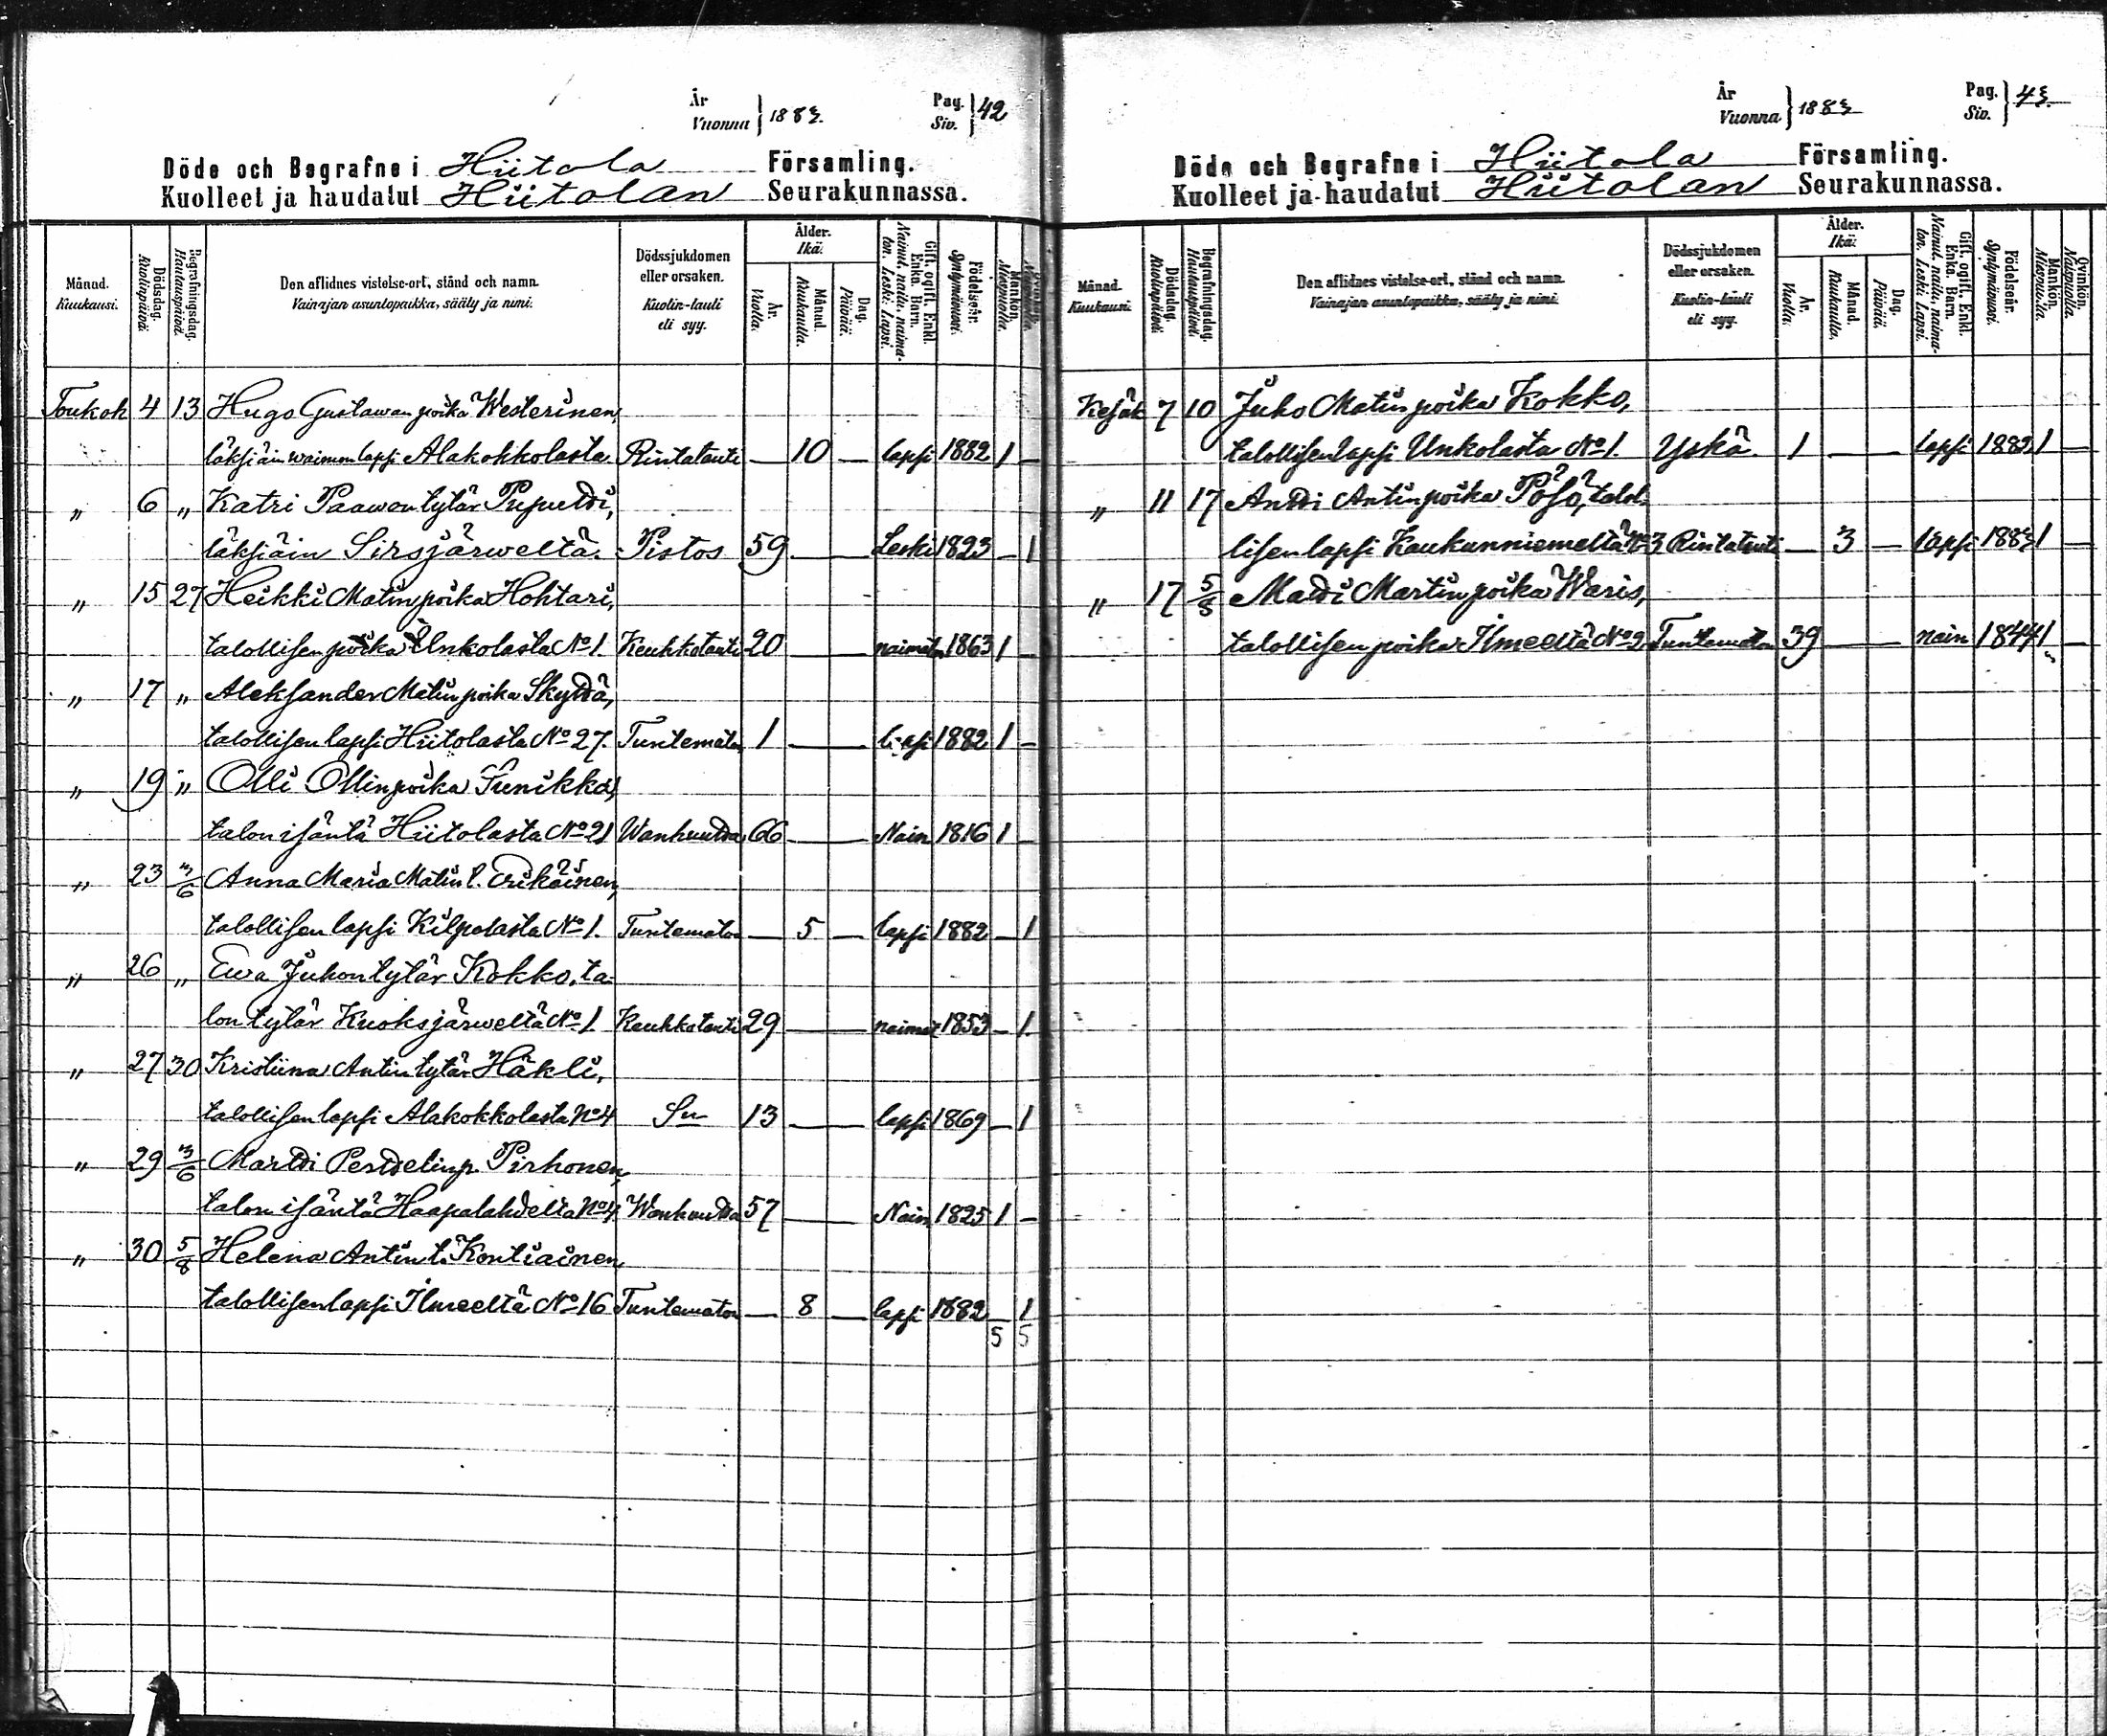 År
Vuonna } 1883.
Pag.
Siv. } 42
Döde och Begrafne i Hiitola Församling.
Kuolleet ja haudatut Hiitolan Seurakunnassa.
Månad. Kuukausi.
Dödsdag. Kuolinpäivä.
Begrafningsdag. Hautauspäivä.
Den aflidnes vistelse-ort, stånd och namn.
Vainajan asuntopaikka, sääty ja nimi.
Dödssjukdomen eller orsaken.
Kuolin-tauti eli syy.
Ålder. Ikä.
År. Vuotta.
Månad. Kuukautta.
Dag. Päivää.
Gift, ogift, Enkl. Enka. Barn.
Nainut, naitu, naimaton. Leski. Lapsi.
Födelseår. Syntymävuosi.
Mankön. Miespuolia.
Qvinkön. Naispuolia.
Toukok 4 13 Hugo Gustawan poika Westerinen,
läksiäin waimon lapsi Alakokkolasta. Rintatauti — 10 — lapsi 1882 1 —
„ 6 „ Katri Paawon tytär
läksiäin Sirsjärweltä. Pistos 59 — Leski 1823 — 1
„ 15 27 Heikki Matin poika Hohtari,
talollisen poika Unkolasta No 1 Keuhkotauti 20 — naimaton 1863 1 —
„ 17 „ Aleksander Matin poika Skyttä,
talollisen lapsi Hiitolasta No 27. Tuntematon 1 — lapsi 1882 1 —
„ 19 „ Olli Ollin poika
talon isäntä Hiitolasta No 21 Wanhuutta 66 — Nain 1816 1 —
„ 23 3/6 Anna Maria Matin t. Erikäinen,
talollisen lapsi Kilpolasta No 1. Tuntematon — 5 — lapsi 1882 — 1
„ 26 „ Ewa Juhon tytär Kokko, ta-
lon tytär Kuoksjärweltä No 1 Keuhkotauti 29 — naimat 1853 — 1
„ 27 30 Kristiina Antin tytär Häkli,
talollisen lapsi Alakokkolasta No 4 Sn 13 — lapsi 1869 — 1
„ 29 3/6 Martti Perttelin p. Pirhonen,
talon isäntä Haapalahdelta No 4 Wanhuutta 57 — Nain 1825 1 —
„ 30 5/8 Helena Antin t. Kontiainen,
talollisen lapsi Ilmeeltä No 16 Tuntematon — 8 — lapsi 1882 — 1
5 5
År
Vuonna } 1883
Pag.
Siv. } 43.
Döde och Begrafne i Hiitola Församling.
Kuolleet ja haudatut Hiitolan Seurakunnassa.
Månad. Kuukausi.
Dödsdag. Kuolinpäivä.
Begrafningsdag. Hautauspäivä.
Den aflidnes vistelse-ort, stånd och namn.
Vainajan asuntopaikka, sääty ja nimi.
Dödssjukdomen eller orsaken.
Kuolin-tauti eli syy.
Ålder. Ikä.
År. Vuotta.
Månad. Kuukautta.
Dag. Päivää.
Gift, ogift, Enkl. Enka. Barn.
Nainut, naitu, naimaton. Leski. Lapsi.
Födelseår. Syntymävuosi.
Mankön. Miespuolia.
Qvinkön. Naispuolia.
Kesäk 7 10 Juho Matin poika Kokko,
talollisen lapsi Unkolasta No 1. Yskä 1 — lapsi 1882 1 —
„ 11 17 Antti Antin poika Pösö, talol-
lisen lapsi Kaukunniemeltä No 3 Rintatauti — 3 — lapsi 1883 1 —
„ 17 5/8 Matti Martin poika Waris,
talollisen poika Ilmeeltä No 2 Tuntematon 39 — nain 1844 1 —